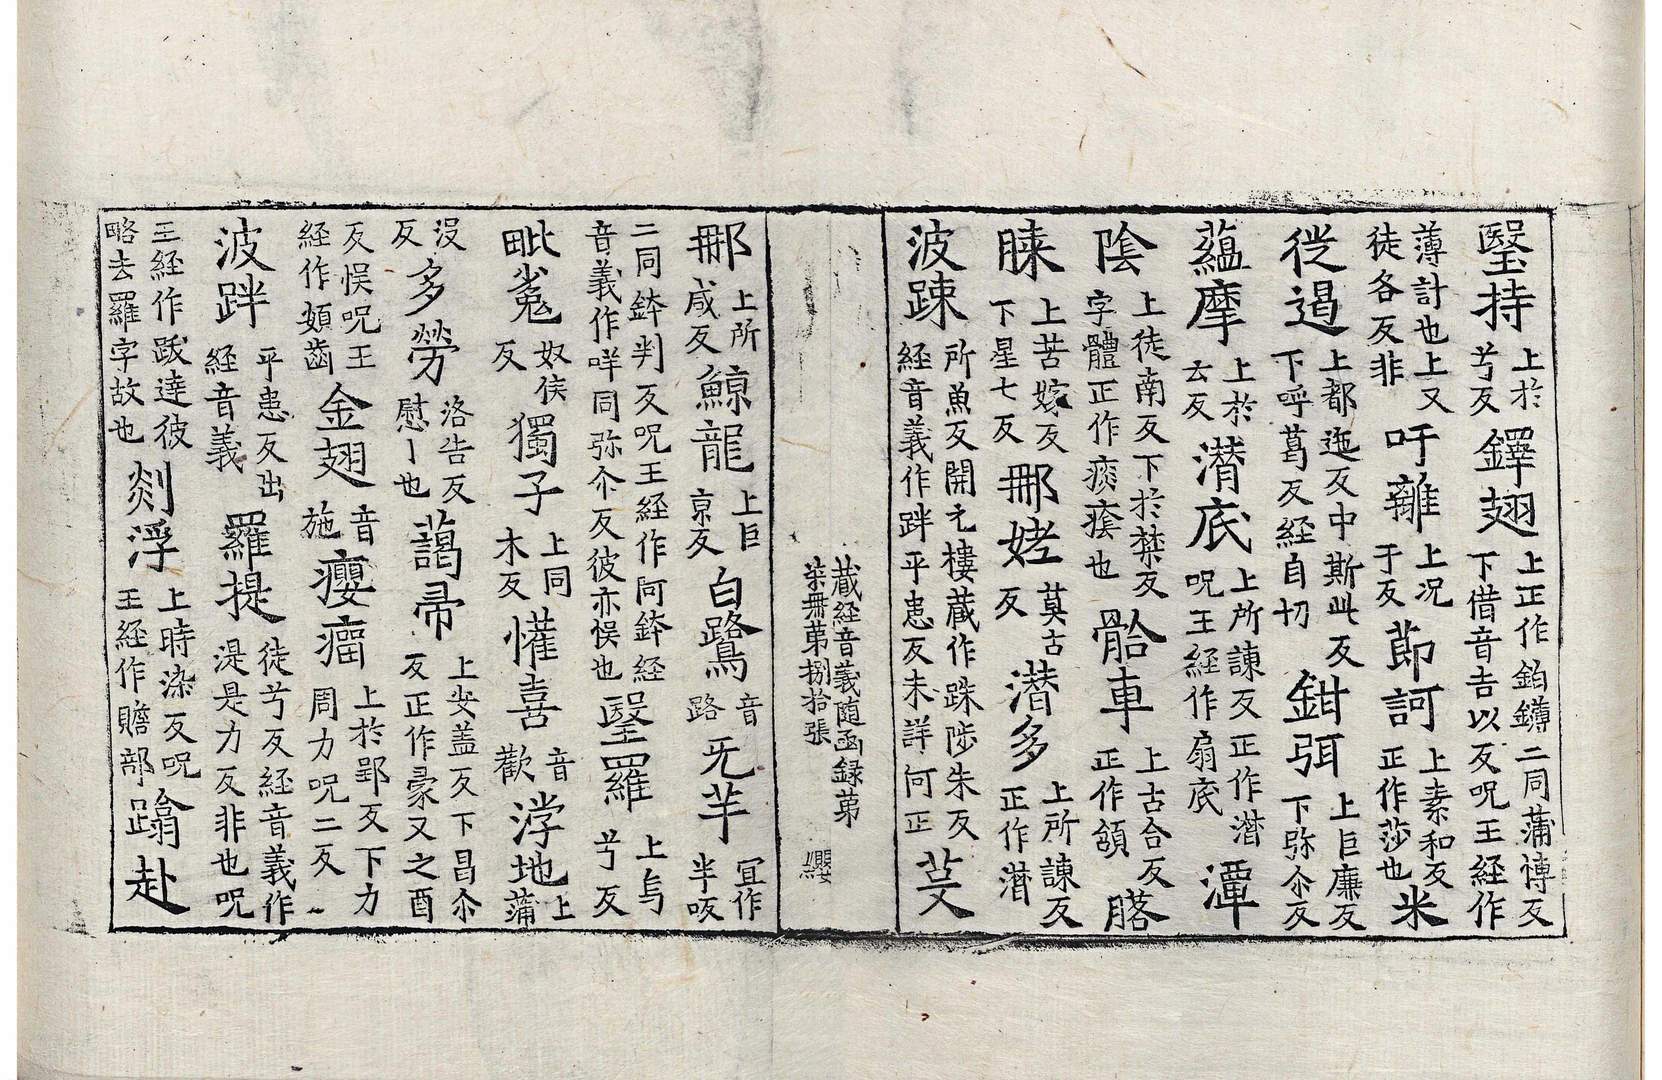 毉持上於兮反鐸翅上正作鈞鑮二同蒲愽反下借音吉以反呪王経作
薄計也上又徒各反非吁離上况于反莭訶上素和反正作莎也米
徙遏上都迤反中斯此反下呼葛反経自切鉗弭上巨廉反下弥尒反
蘊摩上於云反潸底上所諌反正作潸呪王経作扇底潭
隂上徒南反下於禁反字體正作痰癊也骼車上古合反正作頜䐧
䐩上苦嫁反下星七反𨙻姥莫古反潸多上所諌反正作潸
波踈所魚反開元樓蔵作跦陟朱反経音義作跘平患反未詳何正荾
蔵経音義随函録苐
柒冊苐捌拾張 纓
𨙻上所咸反鯨龍上巨亰反白鷺音路旡芉宜作半㕞
二同鉢判反呪王経作阿鉢経音義作咩同弥尒反彼亦悮也毉羅上烏兮反
毗㲋奴侯反獨子上同木反懽喜音歡浡地上蒲
沒反多勞洛告反慰丨也藹帚上安盖反下昌尒反正作豙又之酉
反悮呪王経作頞齒金翅音施癭瘤上於郢反下力周力呪二反
波跘平患反出経音義羅提徒兮反経音義作湜是力反非也呪
王経作䟦達彼略去羅字故也剡浮上時染反呪王経作贍部蹹赴